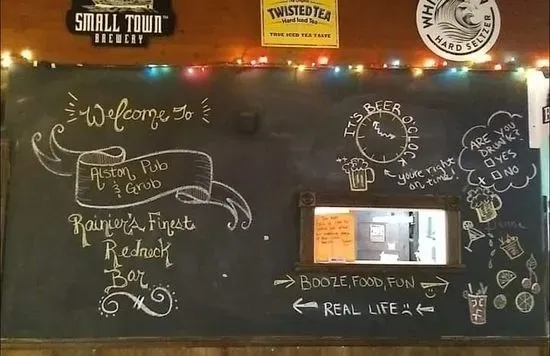 SMALL TOWN
BREWERY
TWISTED TEA
Hard Iced Tea
TRUE ICED TEA TASTE
WHITE
HARD SELTZER
Welcome To
Alston Pub
&
Grub
Rainier's Finest
Redneck
Bar
IT'S BEER O'CLOCK
you're right
on time!
ARE YOU
DRUNK?
YES
NO
BOOZE, FOOD, FUN
REAL LIFE